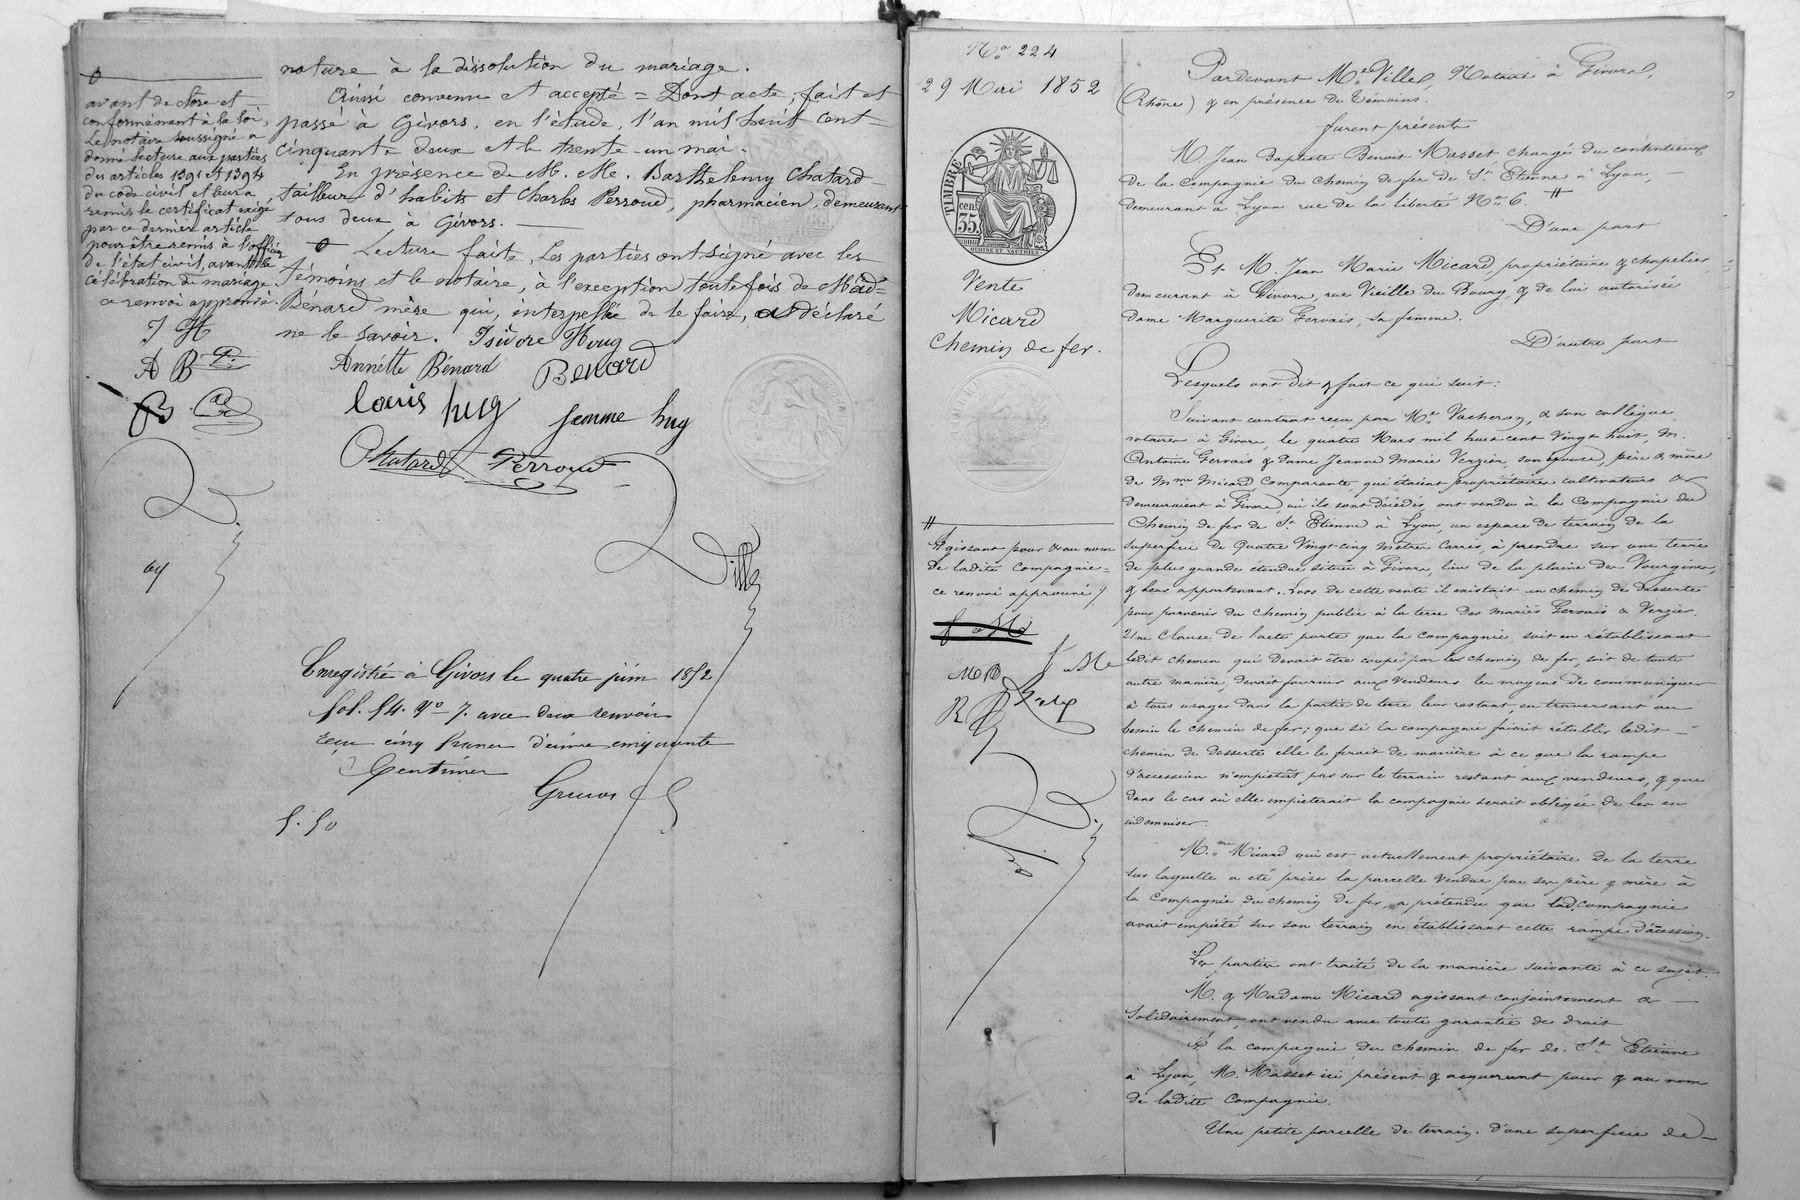 nature à la dissolution du mariage.
Ainsi convenu et accepté = Dont acte, fait et
passé à Givors, en l'étude, l'an mil huit cent
cinquante deux et le trente-un mai.
En présence de M. M. Barthelemy Chatard
tailleur d'habits et Charles Perroud, pharmacien, demeurant
tous deux à Givors.
Lecture faite, les parties ont signé avec les
témoins et le notaire, à l'exception toutefois de Made
Bénard mère qui, interpellée de le faire, a déclaré
ne le savoir. Isidore Hug
Annette Bénard Benard
Louis hug femme hug
Chatard Perroud
Ville
avant de clore et
conformément à la loi,
Le notaire soussigné a
donné lecture aux parties
des articles 1391 et 1394
du code civil et leur a
remis le certificat exigé
par ce dernier article
pour être remis à l'officier
de l'état civil, avant la
célébration du mariage.
ce renvoi approuvé.
J H
A B
B
Enregistré à Givors le quatre juin 1852
fol. 54. Vo 7. avec deux renvois
reçu cinq francs décime cinquante
Centimes
5.50
No 224
29 Mai 1852
TIMBRE
35 cen
OUDINÉ ET VAUTHIER
Vente
Micard
Chemin de fer.
#
Agissant pour & au nom
de ladite Compagnie =
ce renvoi approuvé /
Pardevant Me Ville, Notaire à Givors,
(Rhône) & en présence de témoins.
furent présents
M. Jean Baptiste Benoit Masset, chargé du contentieux
de la Compagnie du Chemin de fer de St Etienne à Lyon,
demeurant à Lyon rue de la liberté No 6. #
D'une part
Et M. Jean Marie Micard propriétaire & chapelier
demeurant à Givors, rue Vieille du Bourg, & de lui autorisée
dame Marguerite Gervais, sa femme.
D'autre part
Lesquels ont dit & fait ce qui suit:
Suivant contrat reçu par Me Vacheron, & son collègue
notaires à Givors, le quatre Mars mil huit cent vingt huit, M.
Antoine Gervais & dame Jeanne Marie Verzier, son épouse, père & mère
de Mme Micard, Comparante, qui étaient propriétaires cultivateurs &
demeuraient à Givors où ils sont décédés, ont vendu à la Compagnie du
Chemin de fer de St Etienne à Lyon, un espace de terrain de la
superficie de Quatre Vingt cinq mètres carrés, à prendre sur une terre
de plus grande étendue située à Givors, lieu de la plaine des
& leur appartenant. Lors de cette vente il existait un chemin de desserte
pour parvenir du chemin public à la terre des mariés Gervais & Verzier.
Une clause de l'acte porte que la Compagnie, soit en rétablissant
ledit chemin qui devait être coupé par le chemin de fer, soit de toute
autre manière, devait fournir aux vendeurs les moyens de communiquer
à tous usages dans la partie de terre leur restant, en traversant au
besoin le chemin de fer; que si la compagnie faisait rétablir ledit
chemin de desserte elle le ferait de manière à ce que la rampe
d'accession n'empiétât pas sur le terrain restant aux vendeurs, & que
dans le cas où elle empiéterait la compagnie serait obligée de les en
indemniser.
Mme Micard qui est actuellement propriétaire de la terre
sur laquelle a été prise la parcelle vendue par ses père & mère à
la Compagnie du chemin de fer, a prétendu que lad. Compagnie
avait empiété sur son terrain en établissant cette rampe d'accession.
Les parties ont traité de la manière suivante à ce sujet.
M. & Madame Micard agissant conjointement &
Solidairement, ont vendu avec toute garantie de droit
A la compagnie du Chemin de fer de St Etienne
à Lyon, M. Masset ici présent & acquérant pour & au nom
de ladite Compagnie.
Une petite parcelle de terrain, d'une superficie de